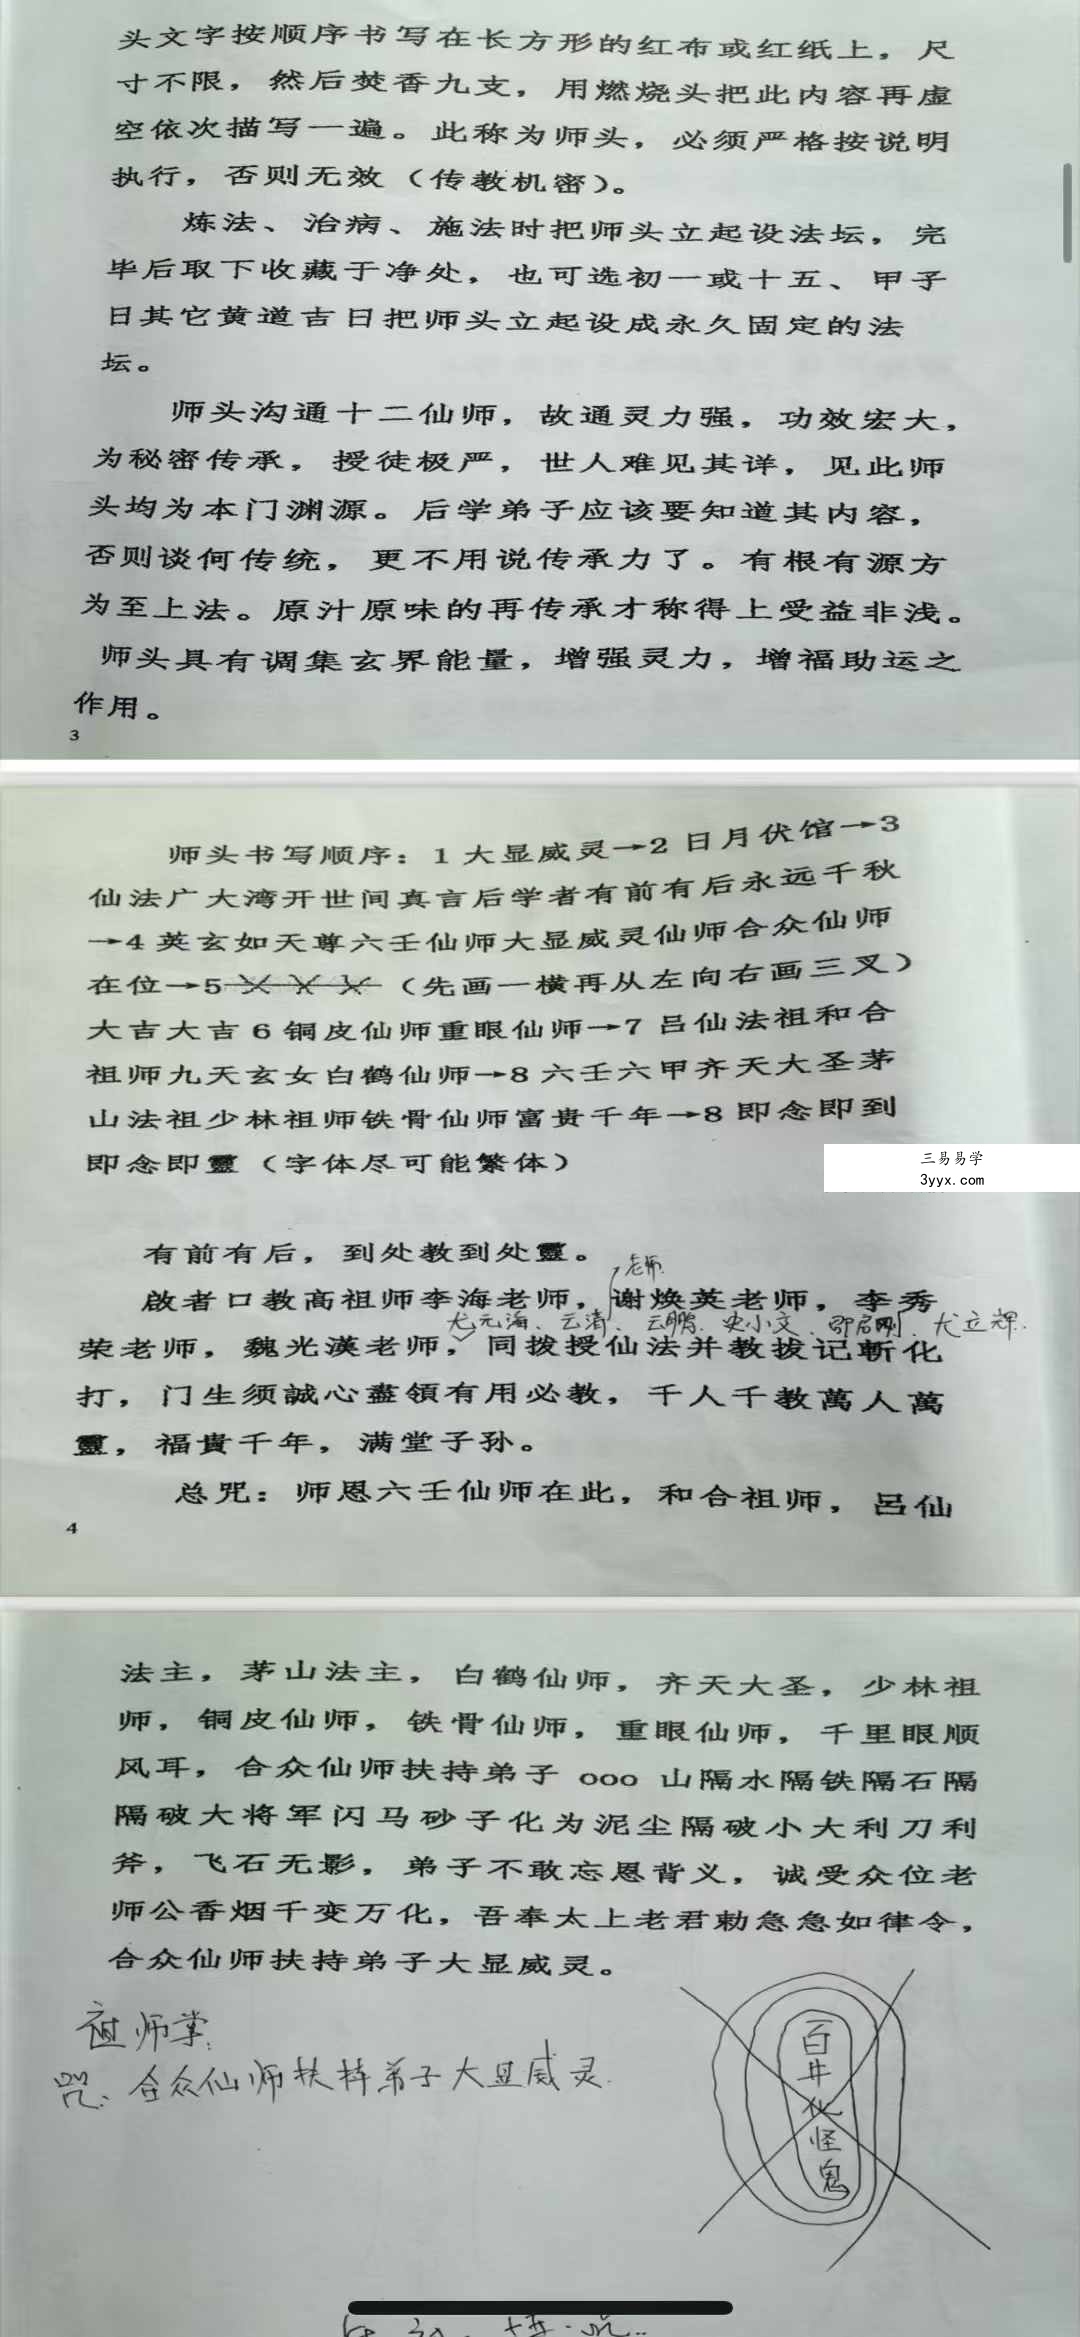 头文字按顺序书写在长方形的红布或红纸上，尺
寸不限，然后焚香九支，用燃烧头把此内容再虚
空依次描写一遍。此称为师头，必须严格按说明
执行，否则无效（传教机密）。
炼法、治病、施法时把师头立起设法坛，完
毕后取下收藏于净处，也可选初一或十五、甲子
日其它黄道吉日把师头立起设成永久固定的法
坛。
师头沟通十二仙师，故通灵力强，功效宏大，
为秘密传承，授徒极严，世人难见其详，见此师
头均为本门渊源。后学弟子应该要知道其内容，
否则谈何传统，更不用说传承力了。有根有源方
为至上法。原汁原味的再传承才称得上受益非浅。
师头具有调集玄界能量，增强灵力，增福助运之
作用。
3
师头书写顺序：1 大显威灵→2 日月伏馆→3
仙法广大湾开世间真言后学者有前有后永远千秋
→4 英玄如天尊六壬仙师大显威灵仙师合众仙师
在位→5 （先画一横再从左向右画三叉）
大吉大吉 6 铜皮仙师重眼仙师→7 吕仙法祖和合
祖师九天玄女白鹤仙师→8 六壬六甲齐天大圣茅
山法祖少林祖师铁骨仙师富贵千年→8 即念即到
即念即靈（字体尽可能繁体）
三易易学
3yyx.com
有前有后，到处教到处靈。
老师
啟者口教高祖师李海老师，谢焕英老师，李秀
尤元海、云清、云鹏、史小文、邵君刚、尤立辉.
荣老师，魏光漢老师，同拨授仙法并教拔记斬化
打，门生须誠心盡領有用必教，千人千教萬人萬
靈，福貴千年，满堂子孙。
总咒：师恩六壬仙师在此，和合祖师，呂仙
4
法主，茅山法主，白鹤仙师，齐天大圣，少林祖
师，铜皮仙师，铁骨仙师，重眼仙师，千里眼顺
风耳，合众仙师扶持弟子 ooo 山隔水隔铁隔石隔
隔破大将军闪马砂子化为泥尘隔破小大利刀利
斧，飞石无影，弟子不敢忘恩背义，诚受众位老
师公香烟千变万化，吾奉太上老君勅急急如律令，
合众仙师扶持弟子大显威灵。
祖师掌:
咒: 合众仙师扶持弟子大显威灵.
百井化怪鬼